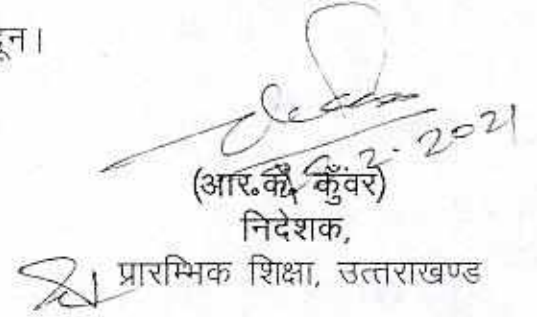 दून।
2.2021
(आर.के. कुँवर)
निदेशक,
प्रारम्भिक शिक्षा, उत्तराखण्ड